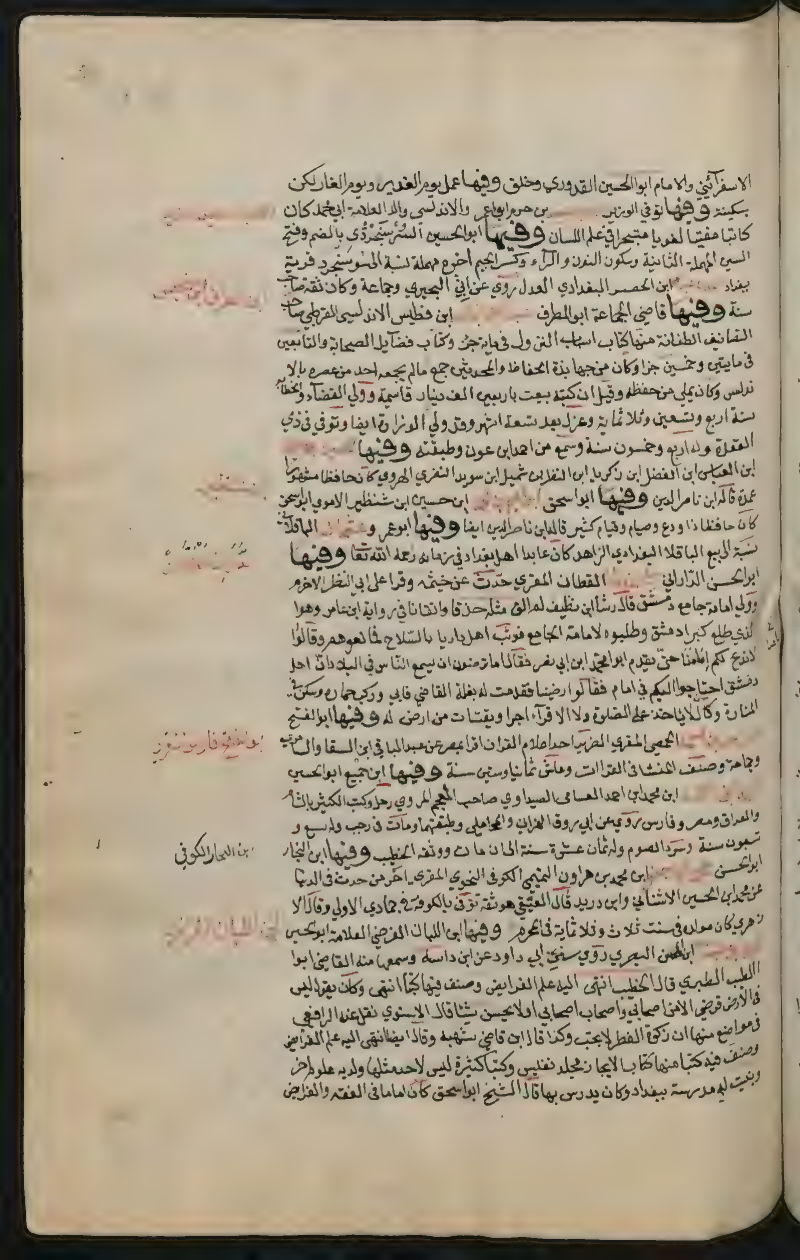 الاسفرآئني والامام ابوالحسين القدوري وخلق وفيها عمل يوم الغدير ويوم الغار لكن
بسكينة وفيها توفي الوزير بن حزم ابوعمر والاندلسي والد العلامة ابي محمد كان
كاتبا مفتيا لغويا متبحرا في علم اللسان وفيها ابوالحسين السوسنجردي بالضم وفتح
السين المهملة الثانية وسكون النون والرآء وكسر الجيم اخره مهملة نسبة الى سوسنجرد قرية
ببغداد ابن الخضر البغدادي العدل روي عن ابن البحيري وجماعة وكان ثقة صاحب
سنة وفيها قاضي الجماعة ابوالمطرف ابن فطيس الاندلسي القرطبي صاحب
التصانيف الطنانة منها كتاب اسباب النزول في ماية جزء وكتاب فضايل الصحابة والتابعين
في مايتين وخمسين جزا وكان من جهابذة الحفاظ والمحدثين جمع مالم يجمعه احد من عصره بالان
ندلس وكان يملي من حفظه وقيل ان كتبه بيعت باربعين الف دينار قاسمية وولي القضآء والخطابة
سنة اربع وتسعين وثلاثماية وعزل بعد تسعة اشهر وقد ولي الوزارة ايضا وتوفي في ذي
القعدة وله اربع وخمسون سنة وسمع من احمد ابن عون وطبقته وفيها
ابن العباس ابن الفضل ابن زكريا ابن النظر ابن شميل ابن سويد النضري الهروي كان حافظا مشهورا
عمدة قاله ابن ناصر الدين وفيها ابواسحق ابن حسين ابن شنظير الاموي ابواسحق
كان حافظا ذا ورع وصيام وقيام كثير قاله ابن ناصر الدين ايضا وفيها ابوعمر وعثمان الباقلاني
نسبة الى بيع الباقلا البغدادي الزاهد كان عابد اهل بغداد في زمانه رحمه الله تعا وفيها
ابوالحسن الداراني القطان المقري حدث عن خيثمه وقرا على ابي النظر الاخرم
وولي امامة جامع دمشق قال رشا ابن نظيف لم الق مثله حذقا واتقانا في رواية ابن عامر وهوا
لذي طلع كبرا دمشق وطلبوه لامامة الجامع فوثب اهل داريا بالسلاح فمانعوهم وقالوا
لاندع لكم امامنا حتى يقدم ابومحمد ابن ابي نصر فقال اما ترضون ان يسمع الناس في البلاد ان اهل
دمشق احتاجوا اليكم في امام فقالوا رضينا فقدمت له بغلة القاضي فابي وركب حماره وسكن في
المنارة وكان لا ياخذ على الصلوة ولا الاقرآء اجرا ويقتات من ارض له وفيها ابوالفتح
الحمصي المقري الضرير احد اعلام القران اقرا بمصر عن عبد الباقي ابن السقا والسامري
وجماعة وصنف المنشا في القراات وعاش ثمانيا وستين سنة وفيها ابن جميع ابوالحسين
ابن محمد ابن احمد الغساني الصيداوي صاحب المعجم المروي رحل وكتب الكثير بالشام
والعراق ومصر وفارس روي عن ابي روق الهزاني والمحاملي وطبقتهما ومات في رجب وله سبع و
تسعون سنة وسرد الصوم وله ثمان عشرة سنة الى ان مات ووثقه الخطيب وفيها ابن النجار
ابوالحسن ابن محمد بن هراون التميمي الكوفي النحوي المقري اخر من حدث في الدنيا
عن محمد ابن الحسين الاشناني وابن دريد قال العتيقي هو ثقة توفي بالكوفة في جمادي الاولي وقال الا
زهري كان مولده في سنت ثلاث وثلاثماية في المحرم وفيها ابن اللبان الفرضي العلامة ابوالحسين
ابن الحسن البصري روي سنن ابي داود عن ابن داسه وسمعها منه القاضي ابوا
الطيب الطبري قال الخطيب انتهى اليه علم الفرايض وصنف فيها كتبا انتهى وكان يقول ليس
في الارض فرضي الامن اصحابي واصحاب اصحابي اولا يحسن شيئا قال الاسنوي نقل عنه الرافعي
في مواضع منها ان زكوة الفطر لا يجب وكذا قال ابن قاضي شهبه وقال ايضا انتهى اليه علم الفرايض
وصنف فيه كتبا منها كتاب الايجاز مجلد نفيس وكتبا كثيرة ليس لاحد مثلها ولديه علوم اخر
وبنيت له مدرسة ببغداد وكان يدرس بها قال الشيخ ابواسحق كان اماما في الفقه والفرايض
ابوالفتح فارس
ابن النجار الكوفي
ابن اللبان الفرضي